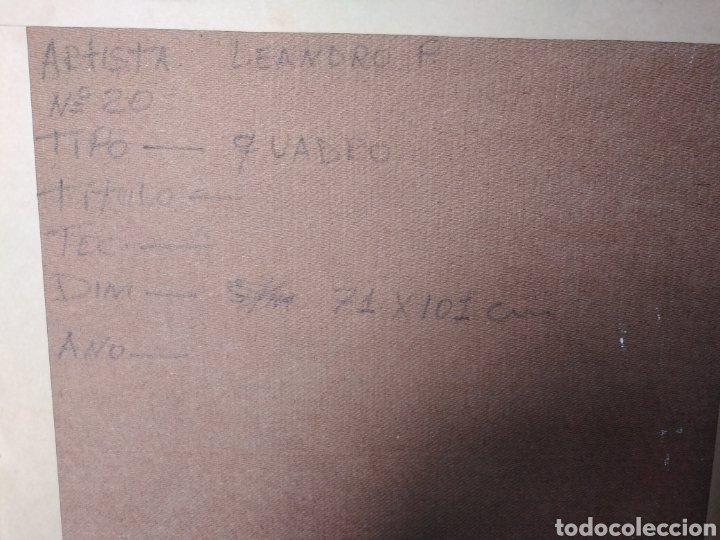 ARTISTA LEANDRO P.
Nº 20
TIPO — QUADRO
TITULO —
TEC —
DIM — 71 X 101 cm
ANO —
todocoleccion